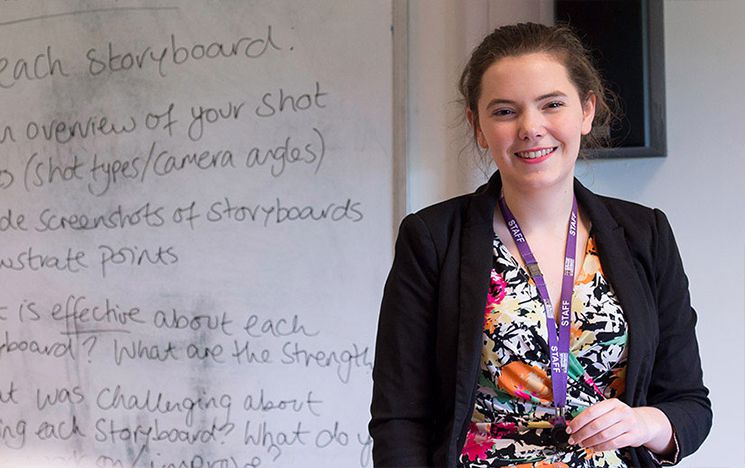 each storyboard.
overview of your shot
(shot types/camera angles)
screenshots of storyboards
points
is effective about each
? What are the strength
was challenging about
each storyboard? What do y
improve?
STAFF
STAFF
STAFF
STAFF